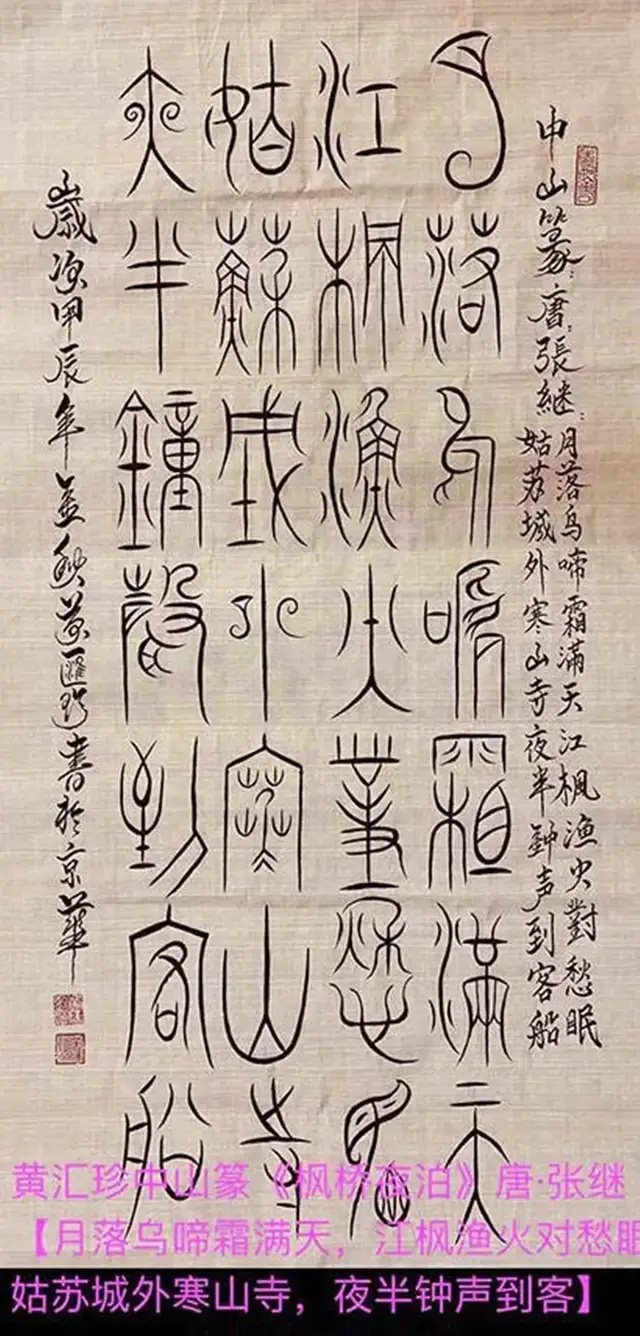 中山篆:唐:張継:月落乌啼霜滿天江楓渔火對愁眠
姑苏城外寒山寺夜半鈡声到客船
月落烏啼霜滿天
江楓漁火對愁眠
姑蘇城外寒山寺
夜半鐘聲到客船
歲次甲辰年孟秋黄匯珍書於京華
黄汇珍中山篆《枫桥夜泊》唐·张继
【月落乌啼霜满天，江枫渔火对愁眠
姑苏城外寒山寺，夜半钟声到客】